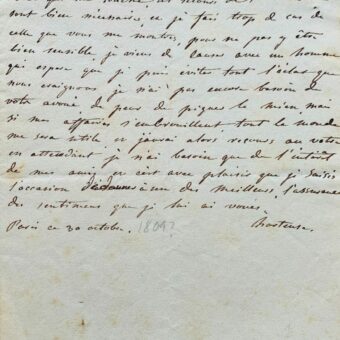 sont bien mesurés, et je fais trop de cas de
celle que vous me montrez, pour ne pas y être
bien sensible, je viens de causer avec un homme
qui espere que je puis eviter tout l'éclat que
nous craignons je n'ai pas encore besoin de
votre avoué de peur de piquer le mien mais
si mes affaires s'embrouillent tout le monde
me sera utile et j'aurai alors recours au votre
en attendant je n'ai besoin que de l'intérêt
de mes amis, et c'est avec plaisir que je saisis
l'occasion de donner à un des meilleurs, l'assurance
des sentimens que je lui ai voués.
hortense.
Paris ce 30 octobre. 1809?